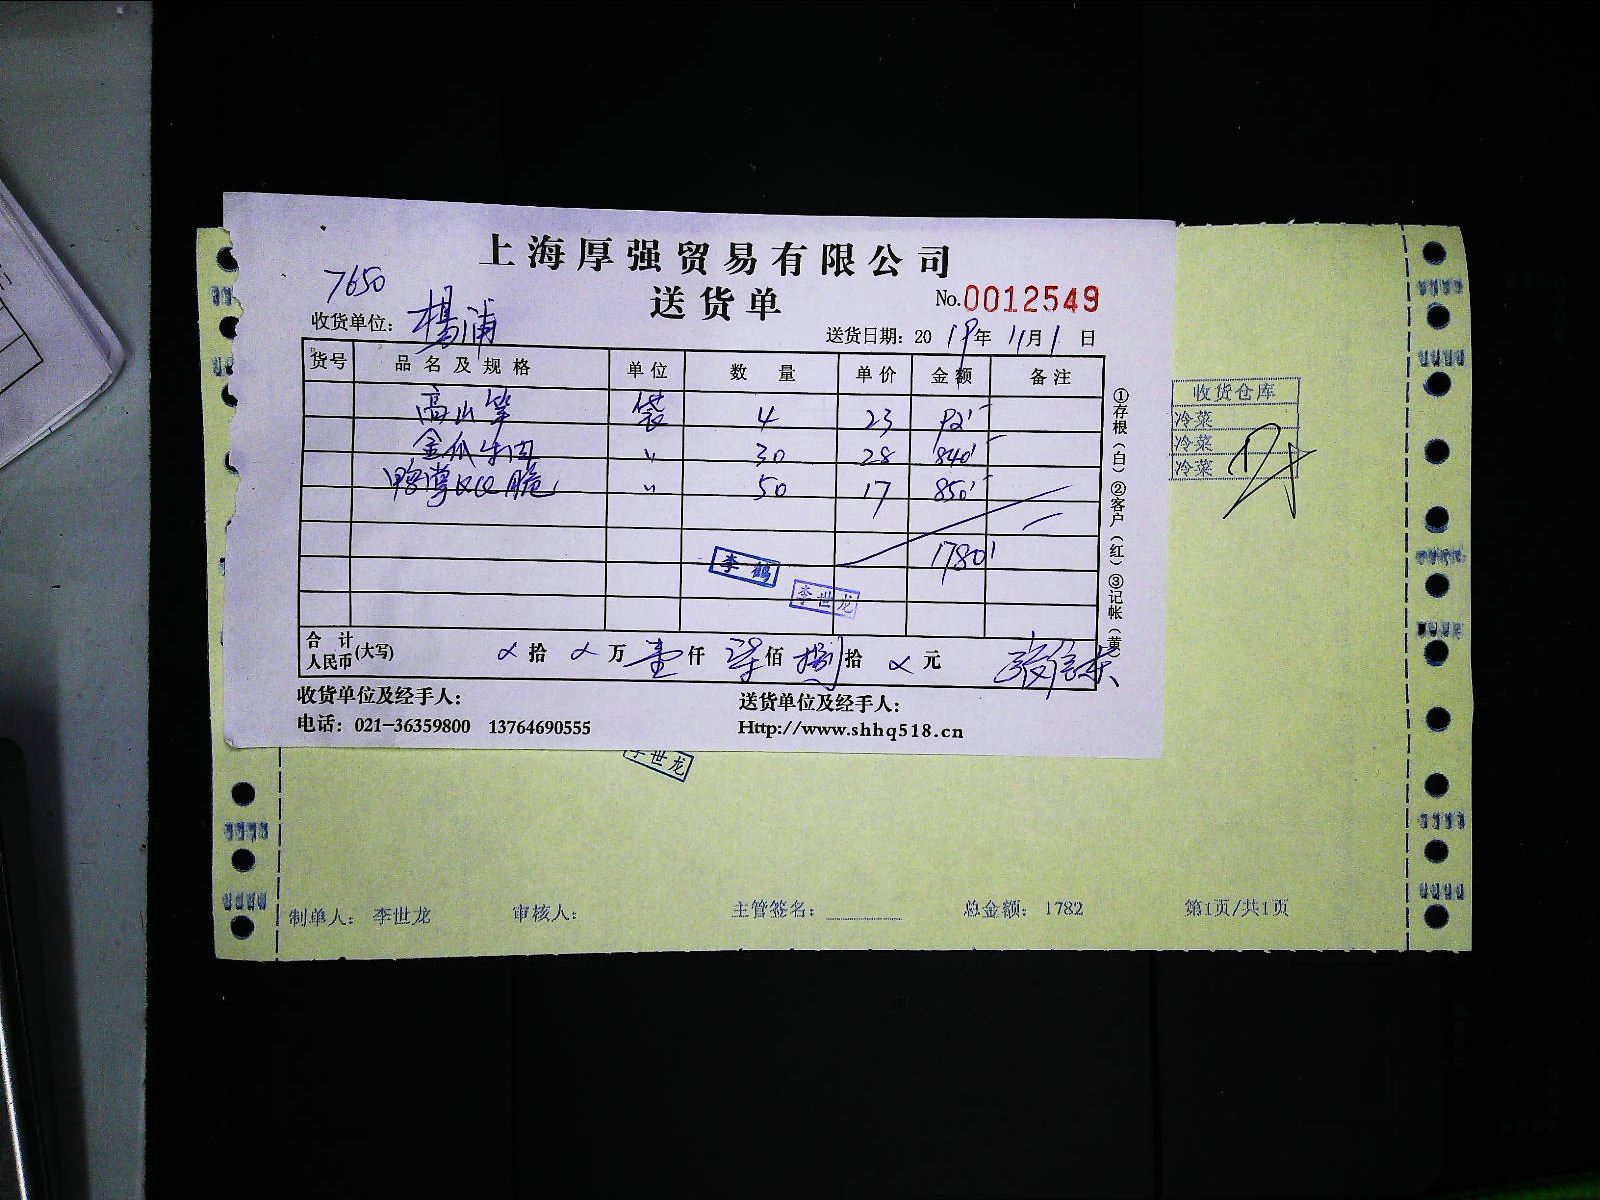 上海厚强贸易有限公司
7650
送货单
No.0012549
收货单位：杨浦
送货日期：2019年11月1日
货号 品名及规格 单位 数量 单价 金额 备注
高山笋 袋 4 23 92
金瓜牛肉 〃 30 28 840
鸭掌 脆 〃 50 17 850
1780
李鹤
李世龙
合计人民币(大写) ×拾×万壹仟柒佰捌拾×元
收货单位及经手人：
送货单位及经手人：
电话：021-36359800 13764690555
Http://www.shhq518.cn
①存根（白）②客户（红）③记帐（黄
收货仓库
冷菜
冷菜
冷菜
李世龙
制单人：李世龙 审核人： 主管签名： 总金额：1782 第1页/共1页